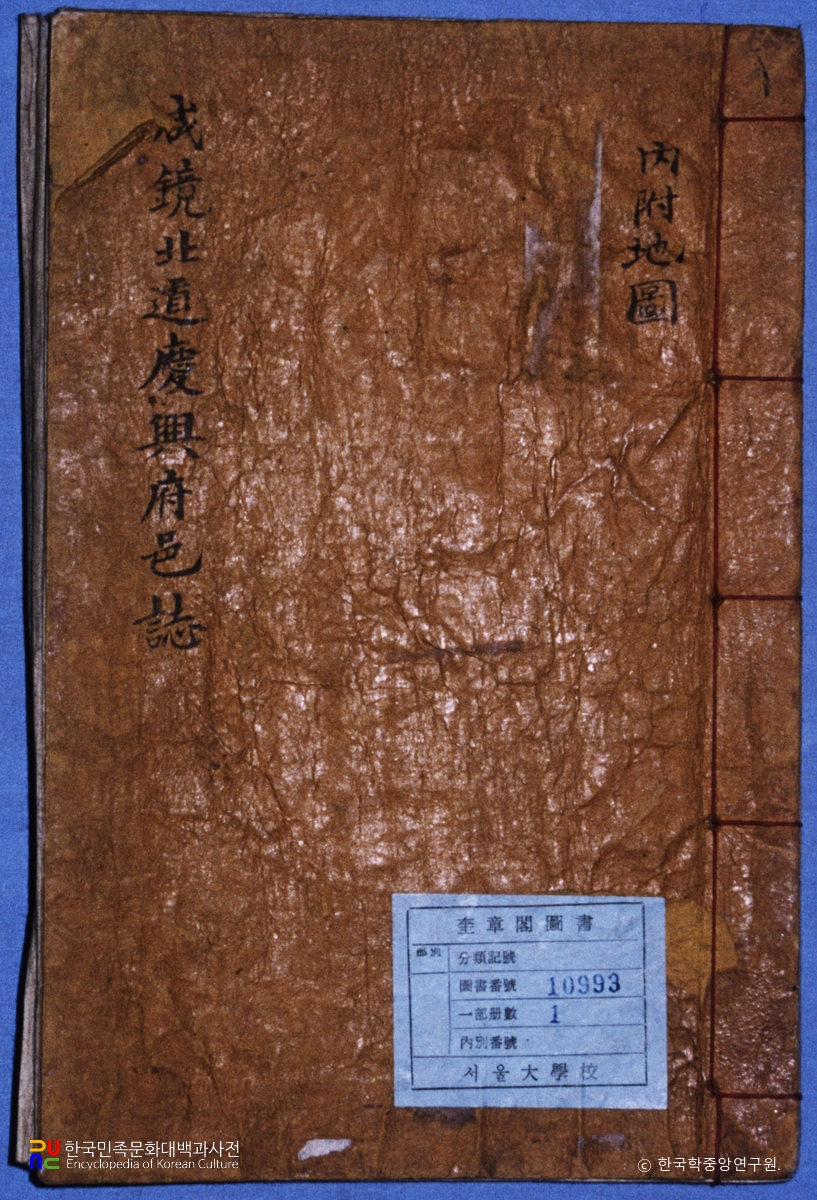 內附地圖
咸鏡北道慶興府邑誌
奎章閣圖書
部別
分類記號
圖書番號 10993
一部册數 1
內別番號
서울大學校
한국민족문화대백과사전
Encyclopedia of Korean Culture
ⓒ 한국학중앙연구원.